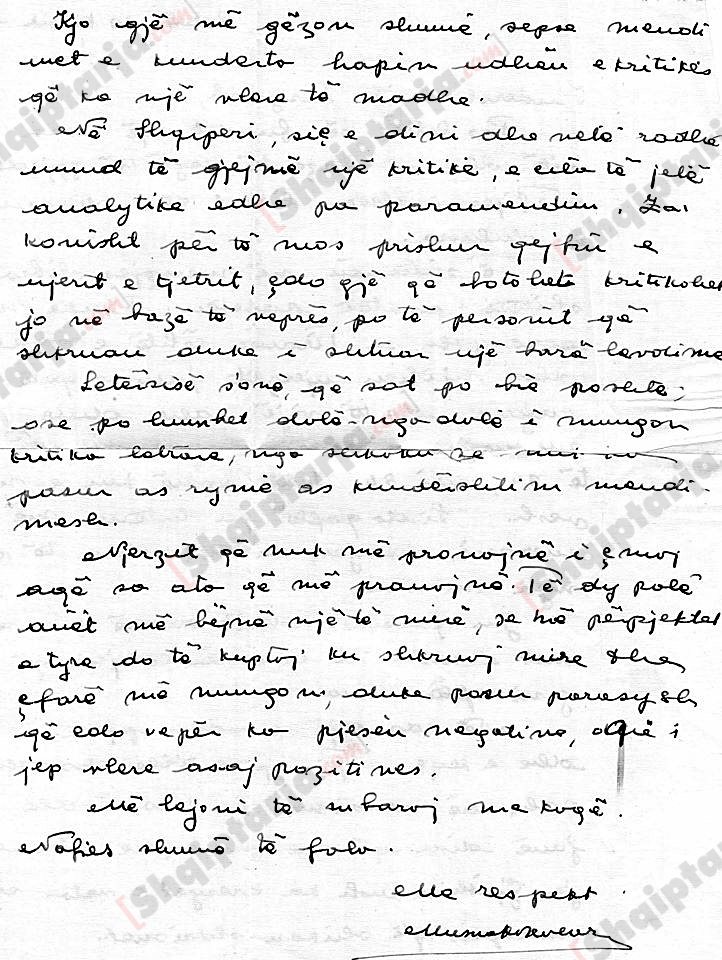 Kjo gjë më gëzon shumë, sepse mendi
met e kunderta hapin udhën e kritikës
që ka një vlere të madhe.
Në Shqiperi, siç e dini dhe vetë radhë
mund të gjejmë një kritikë, e cila të jetë
analytike edhe pa paramendim. Za-
konisht për të mos prishun qejfin e
njerit e tjetrit, çdo gjë që botohet kritikohet
jo në bazë të veprës, po të personit që
shkruan duke i shtuar një barë lavdime
Letërsisë s'onë, që sot po bie poshtë,
ose po humbet dalë-nga dalë i mungon
kritika letrare, nga shkaku se nuk ka
pasun as rymë as kundërshtim mendi-
mesh.
Njerzit që nuk më pranojnë i çmoj
aqë sa ato që më pranojnë. Të dy palë
anët më bëjnë një të mirë, se në përpjektet
e tyre do të kuptoj ku shkruaj mire dhe
çfarë më mungon, duke pasun parasysh
që çdo vepër ka pjesën negative, që i
jep vlere asaj pozitives.
Më lejoni të mbaroj me kaqë.
Nafies shumë të fala.
Me respekt